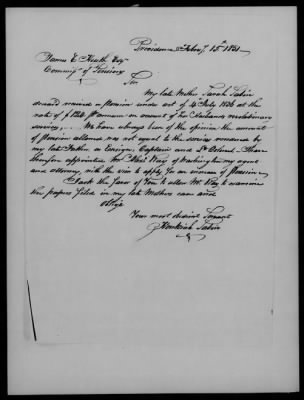 Providence Feby. 15th 1851
James E. Heath Esqr
Commr. of Pensions
Sir
My late Mother Sarah Sabin
received a Pension under act of 4th July 1836 at the
rate of $ pr annum on account of her Husbands revolutionary
services. We have always been of the opinion the amount
of Pension allowed was not equal to the services rendered by
my late Father as Ensign, Captain and Lt Colonel. I have
therefore appointed Mr of Washington my agent
and attorney, with the view to apply for an increase of Pension
I ask the favor of You to allow Mr to examine
the papers filed in my late Mothers case and
oblige
Your most obedient Servant
Sabin